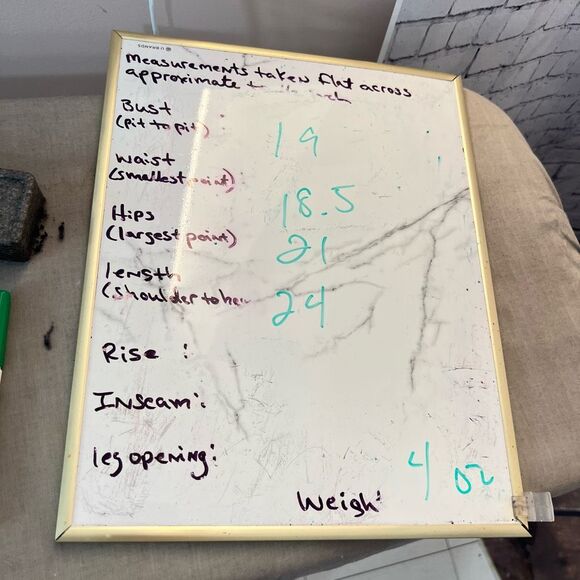 U BRANDS
measurements taken flat across
approximate
Bust
(pit to pit) 19
waist
(smallest point) 18.5
Hips
(largest point) 21
length
(shoulder to hem 24
Rise :
INseam:
leg opening:
4 oz
Weigh: